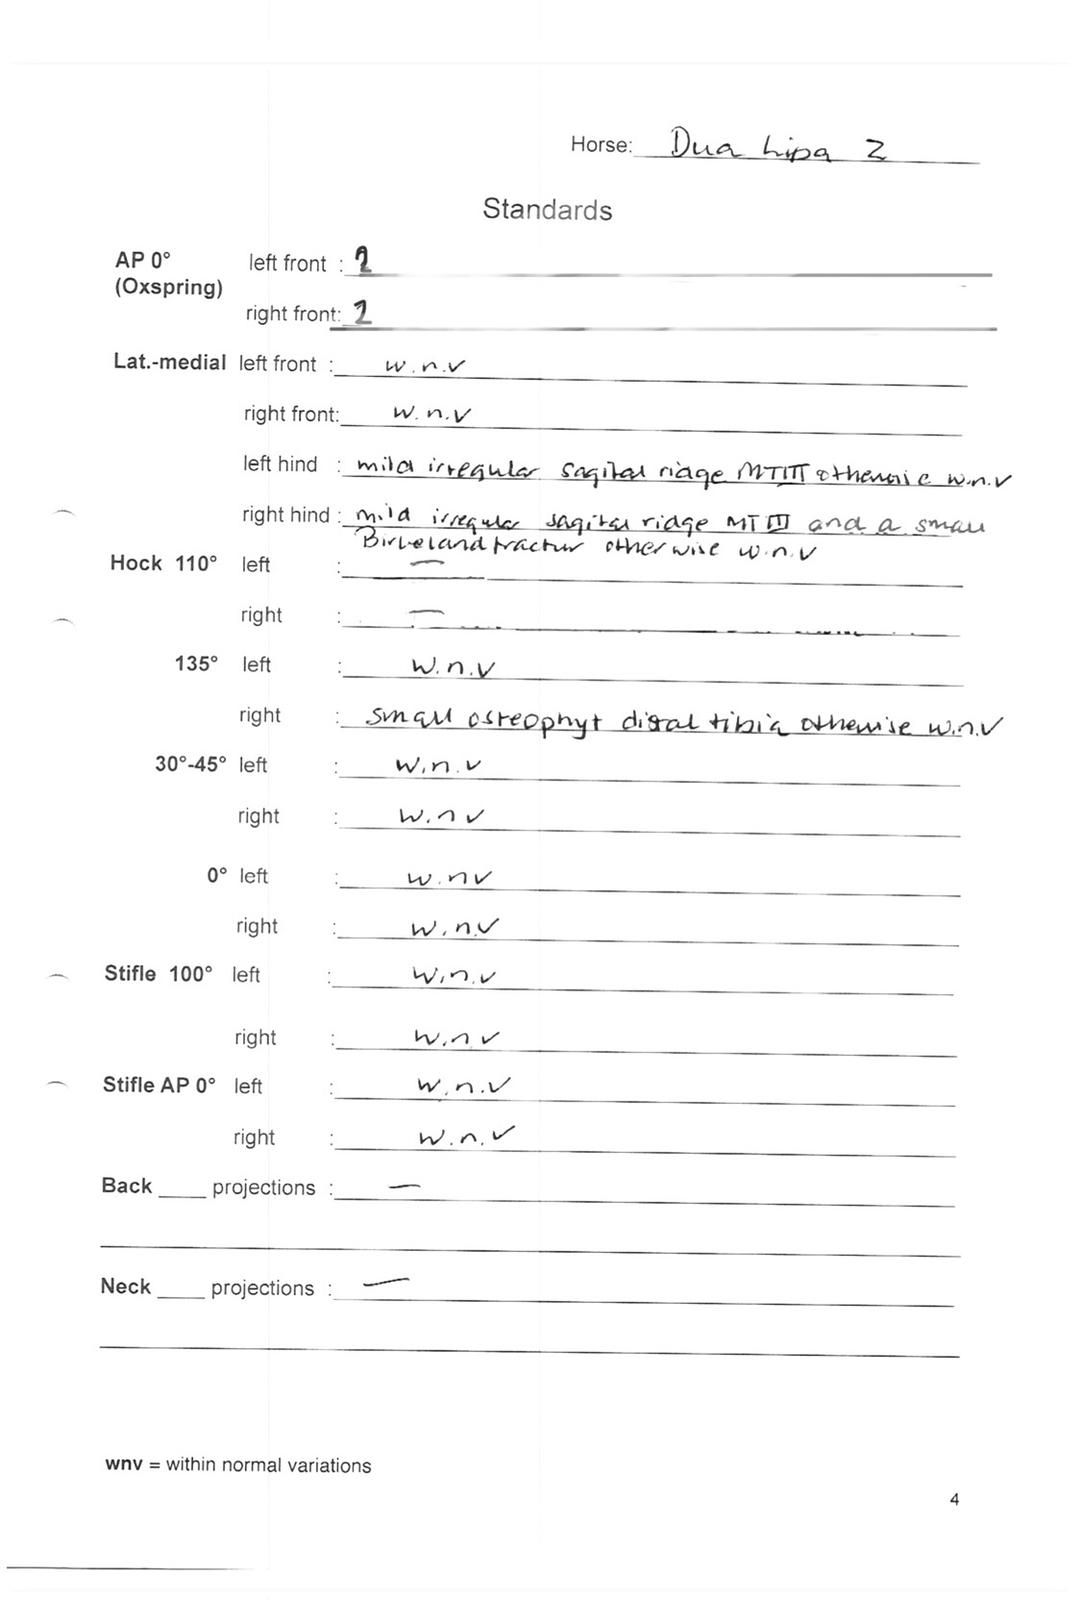 Horse: Dua Lipa Z
Standards
AP 0° left front :
(Oxspring)
right front:
Lat.-medial left front : w.n.v
right front: w.n.v
left hind : mild irregular sagital ridge MTIII otherwise w.n.v
right hind : mild irregular sagital ridge MT III and a small
Birkelandfractur otherwise w.n.v
Hock 110° left : —
right : —
135° left : w.n.v
right : small osteophyt distal tibia otherwise w.n.v
30°-45° left : w.n.v
right : w.n.v
0° left : w.n.v
right : w.n.v
Stifle 100° left : w.n.v
right : w.n.v
Stifle AP 0° left : w.n.v
right : w.n.v
Back ____ projections : —
Neck ____ projections : —
wnv = within normal variations
4